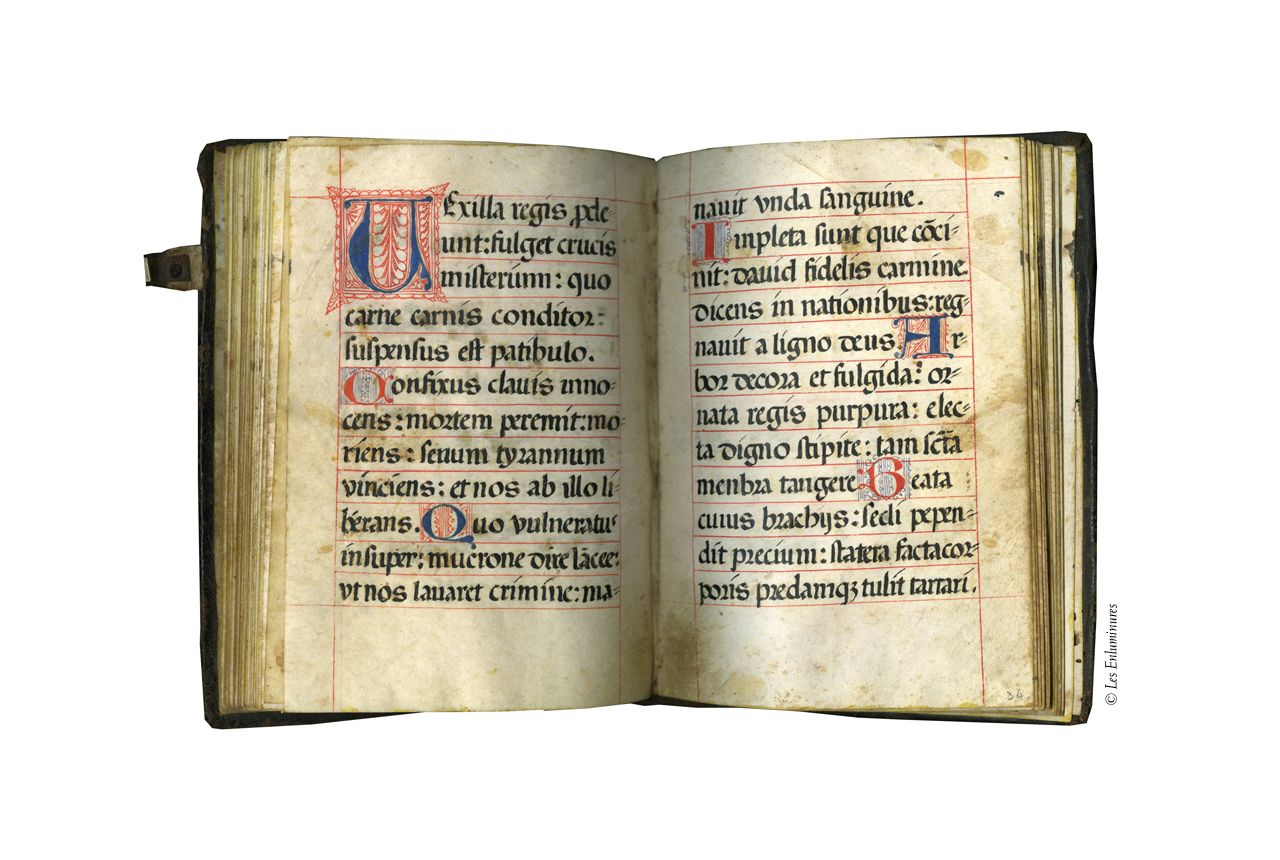 UExilla regis ꝓde-
unt: fulget crucis
misterium: quo
carne carnis conditor:
suspensus est patibulo.
Confixus clauis inno-
cens: mortem peremit: mo
riens: seuum tyrannum
vinciens: et nos ab illo li-
berans. Quo vulneratu
insuper: mucrone dire lācee:
vt nos lauaret crimine: ma-
nauit vnda sanguine.
Inpleta sunt que cōci-
nit: dauid fidelis carmine.
dicens in nationibus: reg-
nauit a ligno deus. Ar-
bor decora et fulgida: or-
nata regis purpura: elec-
ta digno stipite: tam sctā
menbra tangere Beata
cuius brachijs: secli pepen-
dit precium: statera facta cor-
poris predamqꝫ tulit tartari.
34
© Les Enluminures